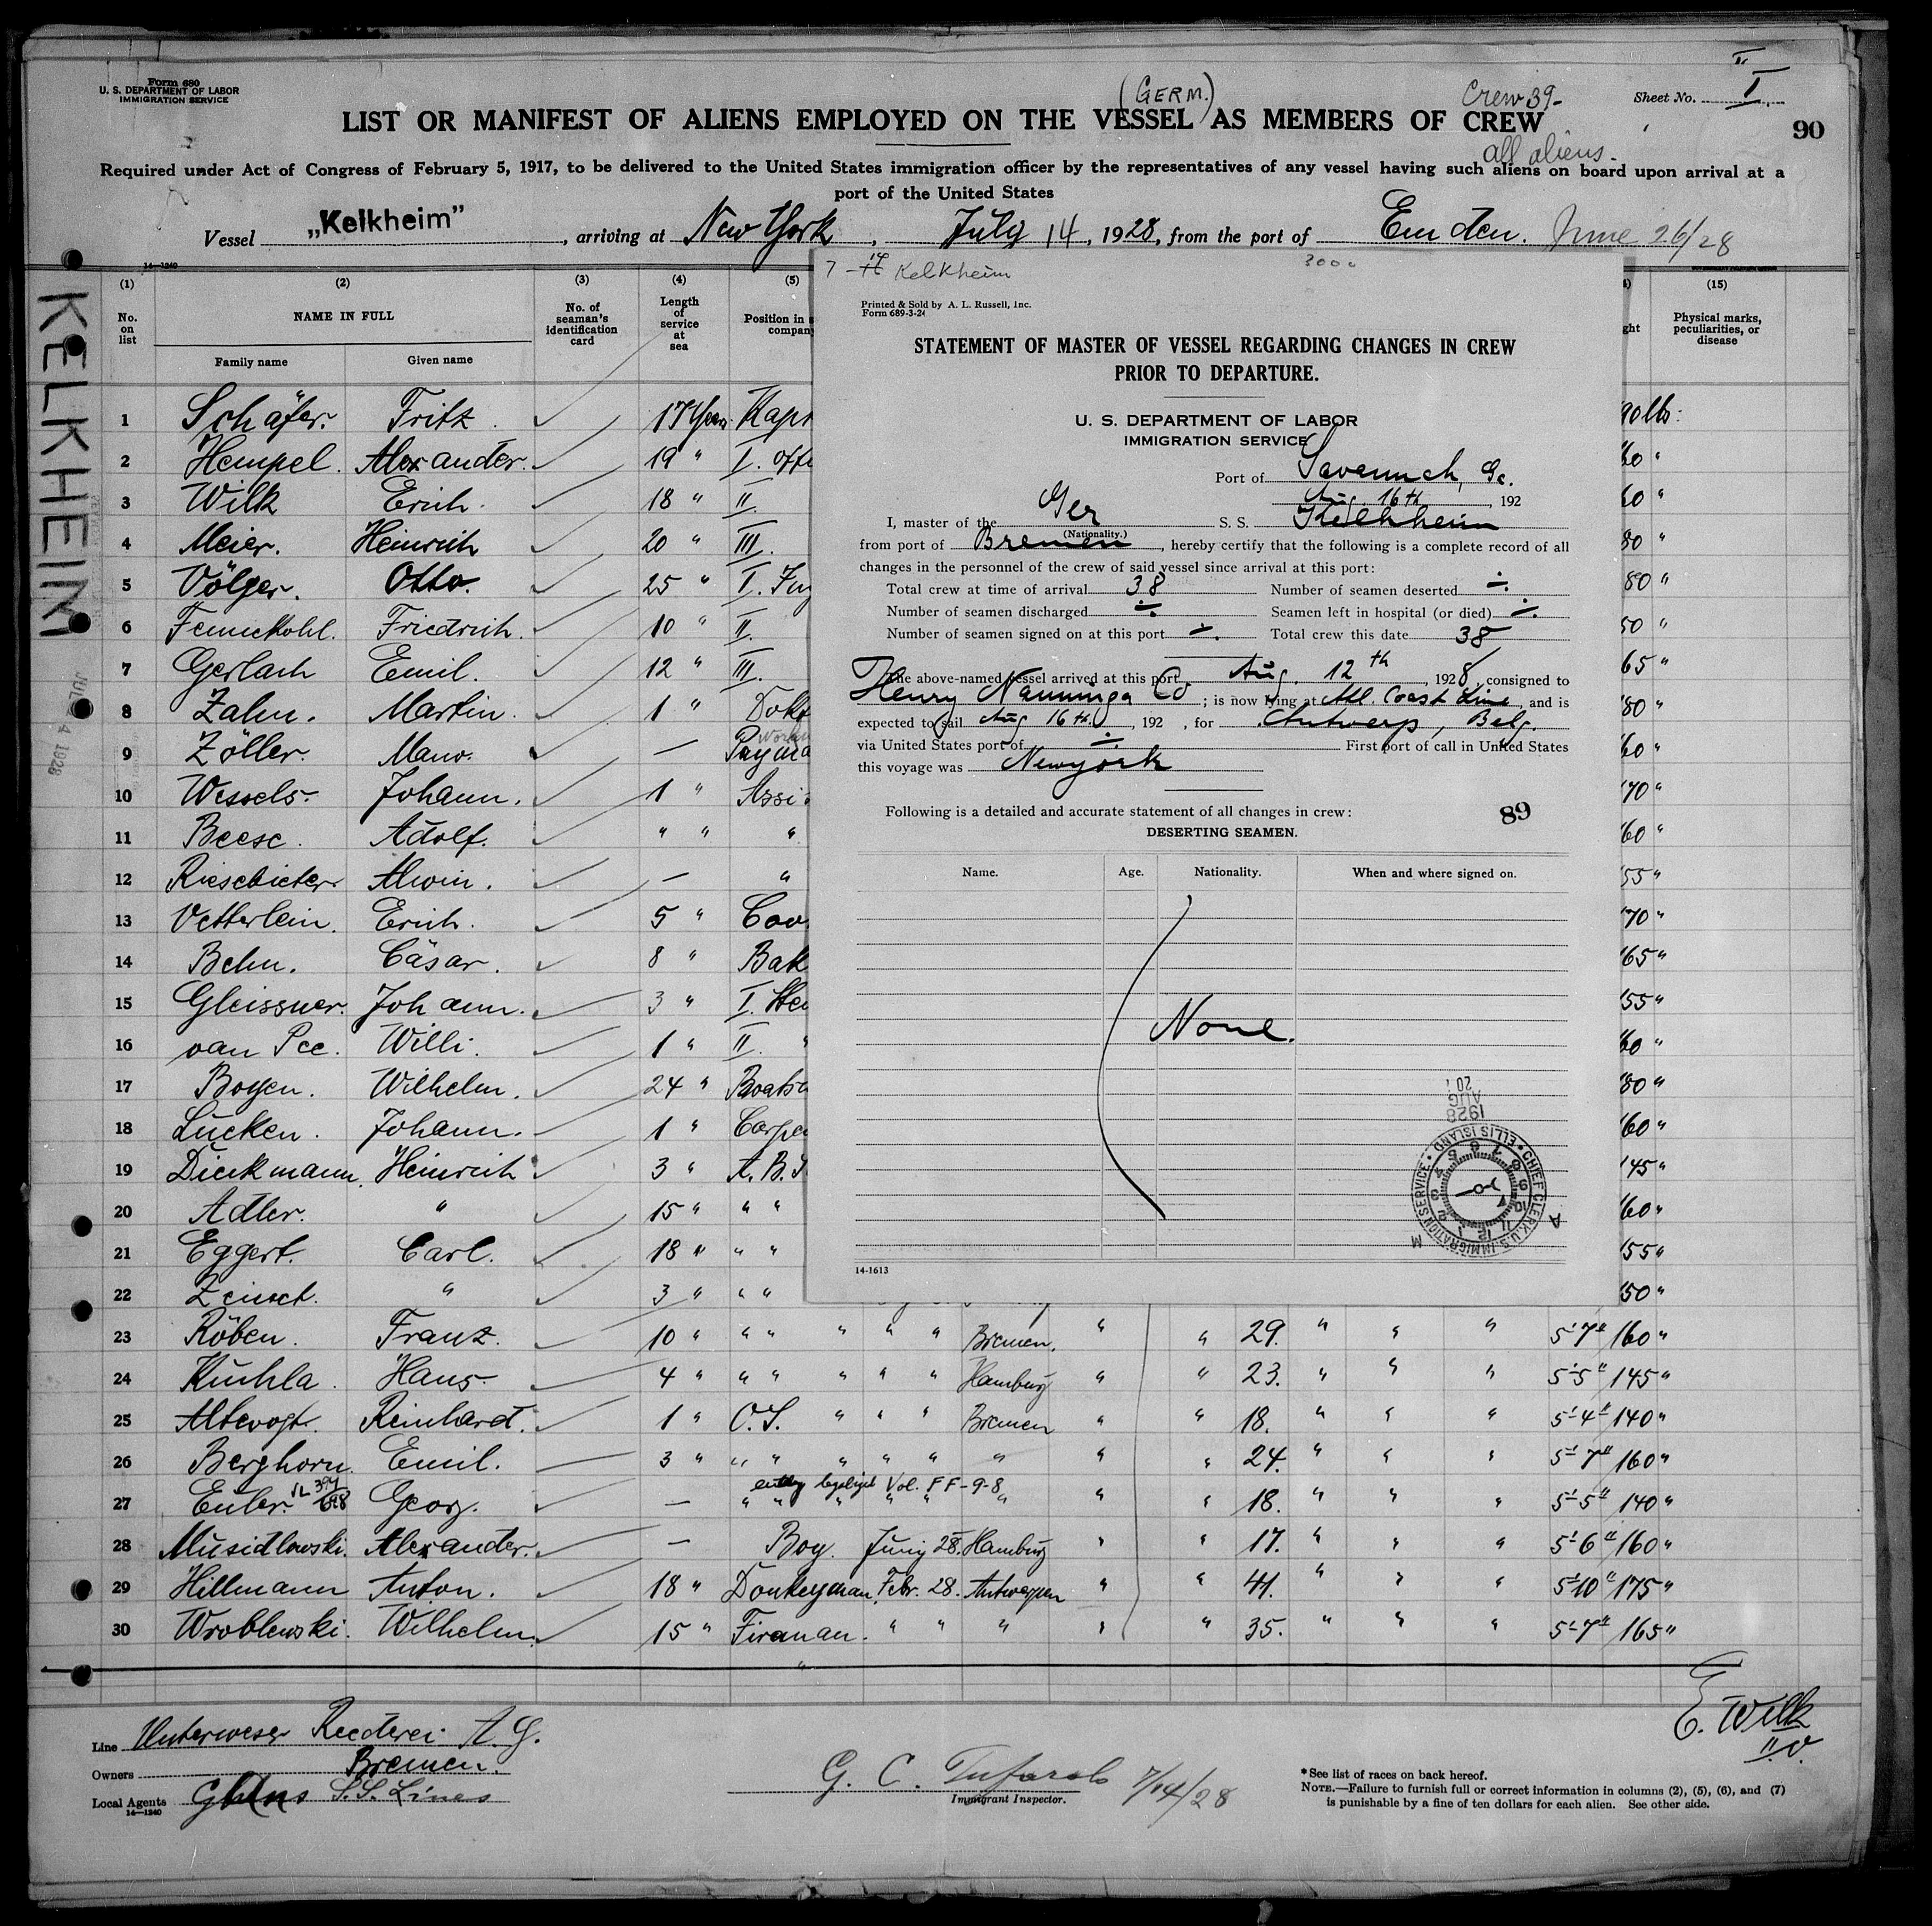 Form 680
U. S. DEPARTMENT OF LABOR
IMMIGRATION SERVICE
(GERM.)
Crew 39-
all aliens.
Sheet No. I
II
90
LIST OR MANIFEST OF ALIENS EMPLOYED ON THE VESSEL AS MEMBERS OF CREW
Required under Act of Congress of February 5, 1917, to be delivered to the United States immigration officer by the representatives of any vessel having such aliens on board upon arrival at a
port of the United States
Vessel „Kelkheim", arriving at New York, July 14, 1928, from the port of Emden. June 26/28
KELKHEIM
14-1240
(1) (2) (3) (4) (5) (15)
No. on list
NAME IN FULL
Family name Given name
No. of seaman's identification card
Length of service at sea
Position in
compan
ght
Physical marks, peculiarities, or disease
1 Schäfer. Fritz. 17 Years Kapt 90 lbs.
2 Hempel. Alexander. 19 " I. Offi 60 "
3 Wilk Erich. 18 " II. 60 "
4 Meier. Heinrich 20 " III. 80 "
5 Völger. Otto. 25 " I. Ing 80 "
6 Friedrich. 10 " II. 50 "
7 Gerlach Emil. 12 " III. 65 "
8 Zahn. Martin. 1 " Dokt 80 "
9 Zöller. — Payma 60 "
10 Wessels. Johann. 1 " Assi 70 "
11 Beese. Adolf. " " " 60 "
12 Riesebieter Alwin. — " 55 "
13 Vetterlein. Erich. 5 " Coo 70 "
14 Behn. Cäsar. 8 " Bak 65 "
15 Gleissner. Johann. 3 " I. Ste 55 "
16 van Pee. Willi. 1 " II. " 60 "
17 Boyen. Wilhelm. 24 " Boats 80 "
18 Lücken. Johann. 1 " Carpe 60 "
19 Dieckmann. Heinrich 3 " A.B.S 45 "
20 Adler. " 15 " " " 60 "
21 Eggert. Carl. 18 " " " 55 "
22 " 3 " " " 50 "
23 Röben. Franz. 10 " " " " " " Bremen. " " 29. " " " 5'-7" 160 "
24 Kuchla. Hans. 4 " " " " " " Hamburg " " 23. " " " 5'-5" 145 "
25 Altevogt. Reinhard. 1 " O.S. " " " Bremen " " 18. " " " 5'-4" 140 "
26 Berghorn. Emil. 3 " " " " " " " " " 24. " " " 5'-7" 160 "
Vol. FF-9-8
27 Euler. Georg. — " " " " " " " " 18. " " " 5'-5" 140 "
28 Musidlowski. Alexander. — Boy. Juny 28. Hamburg " " 17. " " " 5'-6" 160 "
29 Hillmann Anton. 18 " Donkeyman. Febr. 28. Antwerpen " " 41. " " " 5'-10" 175 "
30 Wroblewski. Wilhelm. 15 " Fireman. " " " " " 35. " " " 5'-7" 165 "
E. Wilk
II. O.
Line Unterweser Reederei A.G.
Owners Bremen.
Local Agents S.S. Lines
14-1240
G. C. Tufarolo 7/14/28
Immigrant Inspector.
*See list of races on back hereof.
NOTE.—Failure to furnish full or correct information in columns (2), (5), (6), and (7)
is punishable by a fine of ten dollars for each alien. See other side.
7 - 14 Kelkheim
Printed & Sold by A. L. Russell, Inc.
Form 689-3-24
STATEMENT OF MASTER OF VESSEL REGARDING CHANGES IN CREW
PRIOR TO DEPARTURE.
U. S. DEPARTMENT OF LABOR
IMMIGRATION SERVICE
Port of Savannah, Ga.
Aug. 16th, 192
I, master of the Ger S. S. Kelkheim
(Nationality.)
from port of Bremen, hereby certify that the following is a complete record of all
changes in the personnel of the crew of said vessel since arrival at this port:
Total crew at time of arrival 38 Number of seamen deserted ÷
Number of seamen discharged ÷ Seamen left in hospital (or died) ÷
Number of seamen signed on at this port ÷ Total crew this date 38
The above-named vessel arrived at this port Aug. 12th, 1928, consigned to
Henry Nanninga Co; is now lying at Atl. Coast Line, and is
expected to sail Aug 16th, 192 , for Antwerp, Belg.
via United States port of ÷ First port of call in United States
this voyage was Newyork
Following is a detailed and accurate statement of all changes in crew:
89
DESERTING SEAMEN.
Name. Age. Nationality. When and where signed on.
None.
1928
AUG
20
CHIEF CLERK, U.S. IMMIGRATION SERVICE • ELLIS ISLAND
A M
14-1613